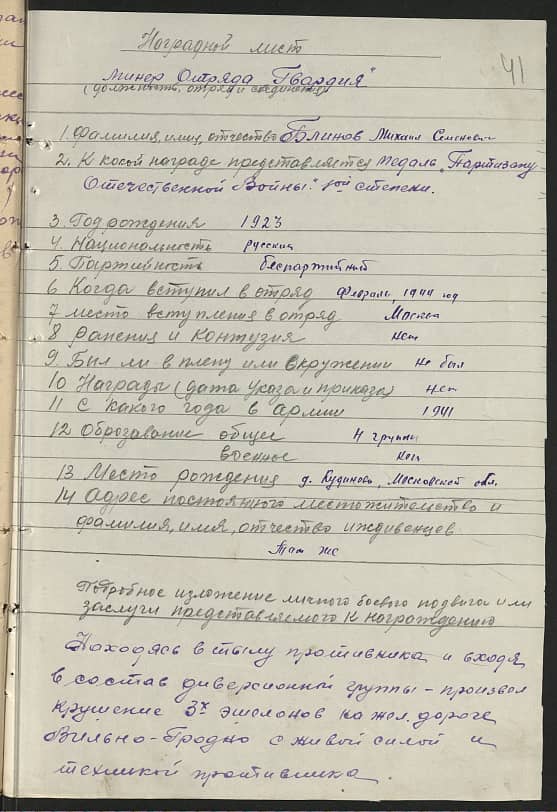 Наградной лист
41
Минер Отряда "Гвардия"
(должность, отряд и соединение)
1. Фамилия, имя, отчество Блинов Михаил Семенович
2. К какой награде представляется медаль "Партизану
Отечественной Войны" степени.
3. Год рождения 1923
4. Национальность русский
5. Партийность беспартийный
6 Когда вступил в отряд Февраль, 1944 год
7 место вступления в отряд Москва
8 ранения и контузия нет
9 Был ли в плену или окружении не был
10 Награды (дата указа и приказа) нет
11 С какого года в армии 1941
12 Оброзавание общее 4 группы
военное нет
13 Место рождения д. Кудиново, Московской обл.
14 Адрес постоянного местожительство и
фамилия, имя, отчество иждивенцев
Там же
Подробное изложение личного боевого подвига или
заслуги представляемого к награждению
Находясь в тылу противника и входя
в состав диверсионной группы – произвел
крушение 3х эшелонов на жел. дороге
Вильно-Гродно с живой силой и
техникой противника.